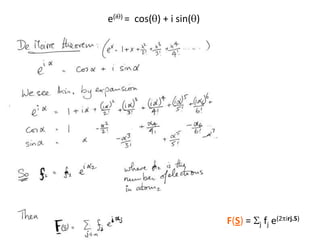 e(iθ) = cos(θ) + i sin(θ)
De Moivre theorem: (eˣ = 1 + x + x²/2! + x³/3! + x⁴/4! ......)
e^iα = cosα + i sinα
We see this, by expansion
e^iα = 1 + iα + (iα)²/2! + (iα)³/3! + (iα)⁴/4! + (iα)⁵/5! + (iα)⁶/6!
cosα = 1 - α²/2! + α⁴/4! - α⁶/6!
sinα = α - α³/3! + α⁵/5!
So f₂ = f₂ e^iα₂ where f₂ is the
number of electrons
in atom 2
Then
F(s) = Σ fj e^iαj
j=1→n
F(S) = Σj fj e(2πirj.S)